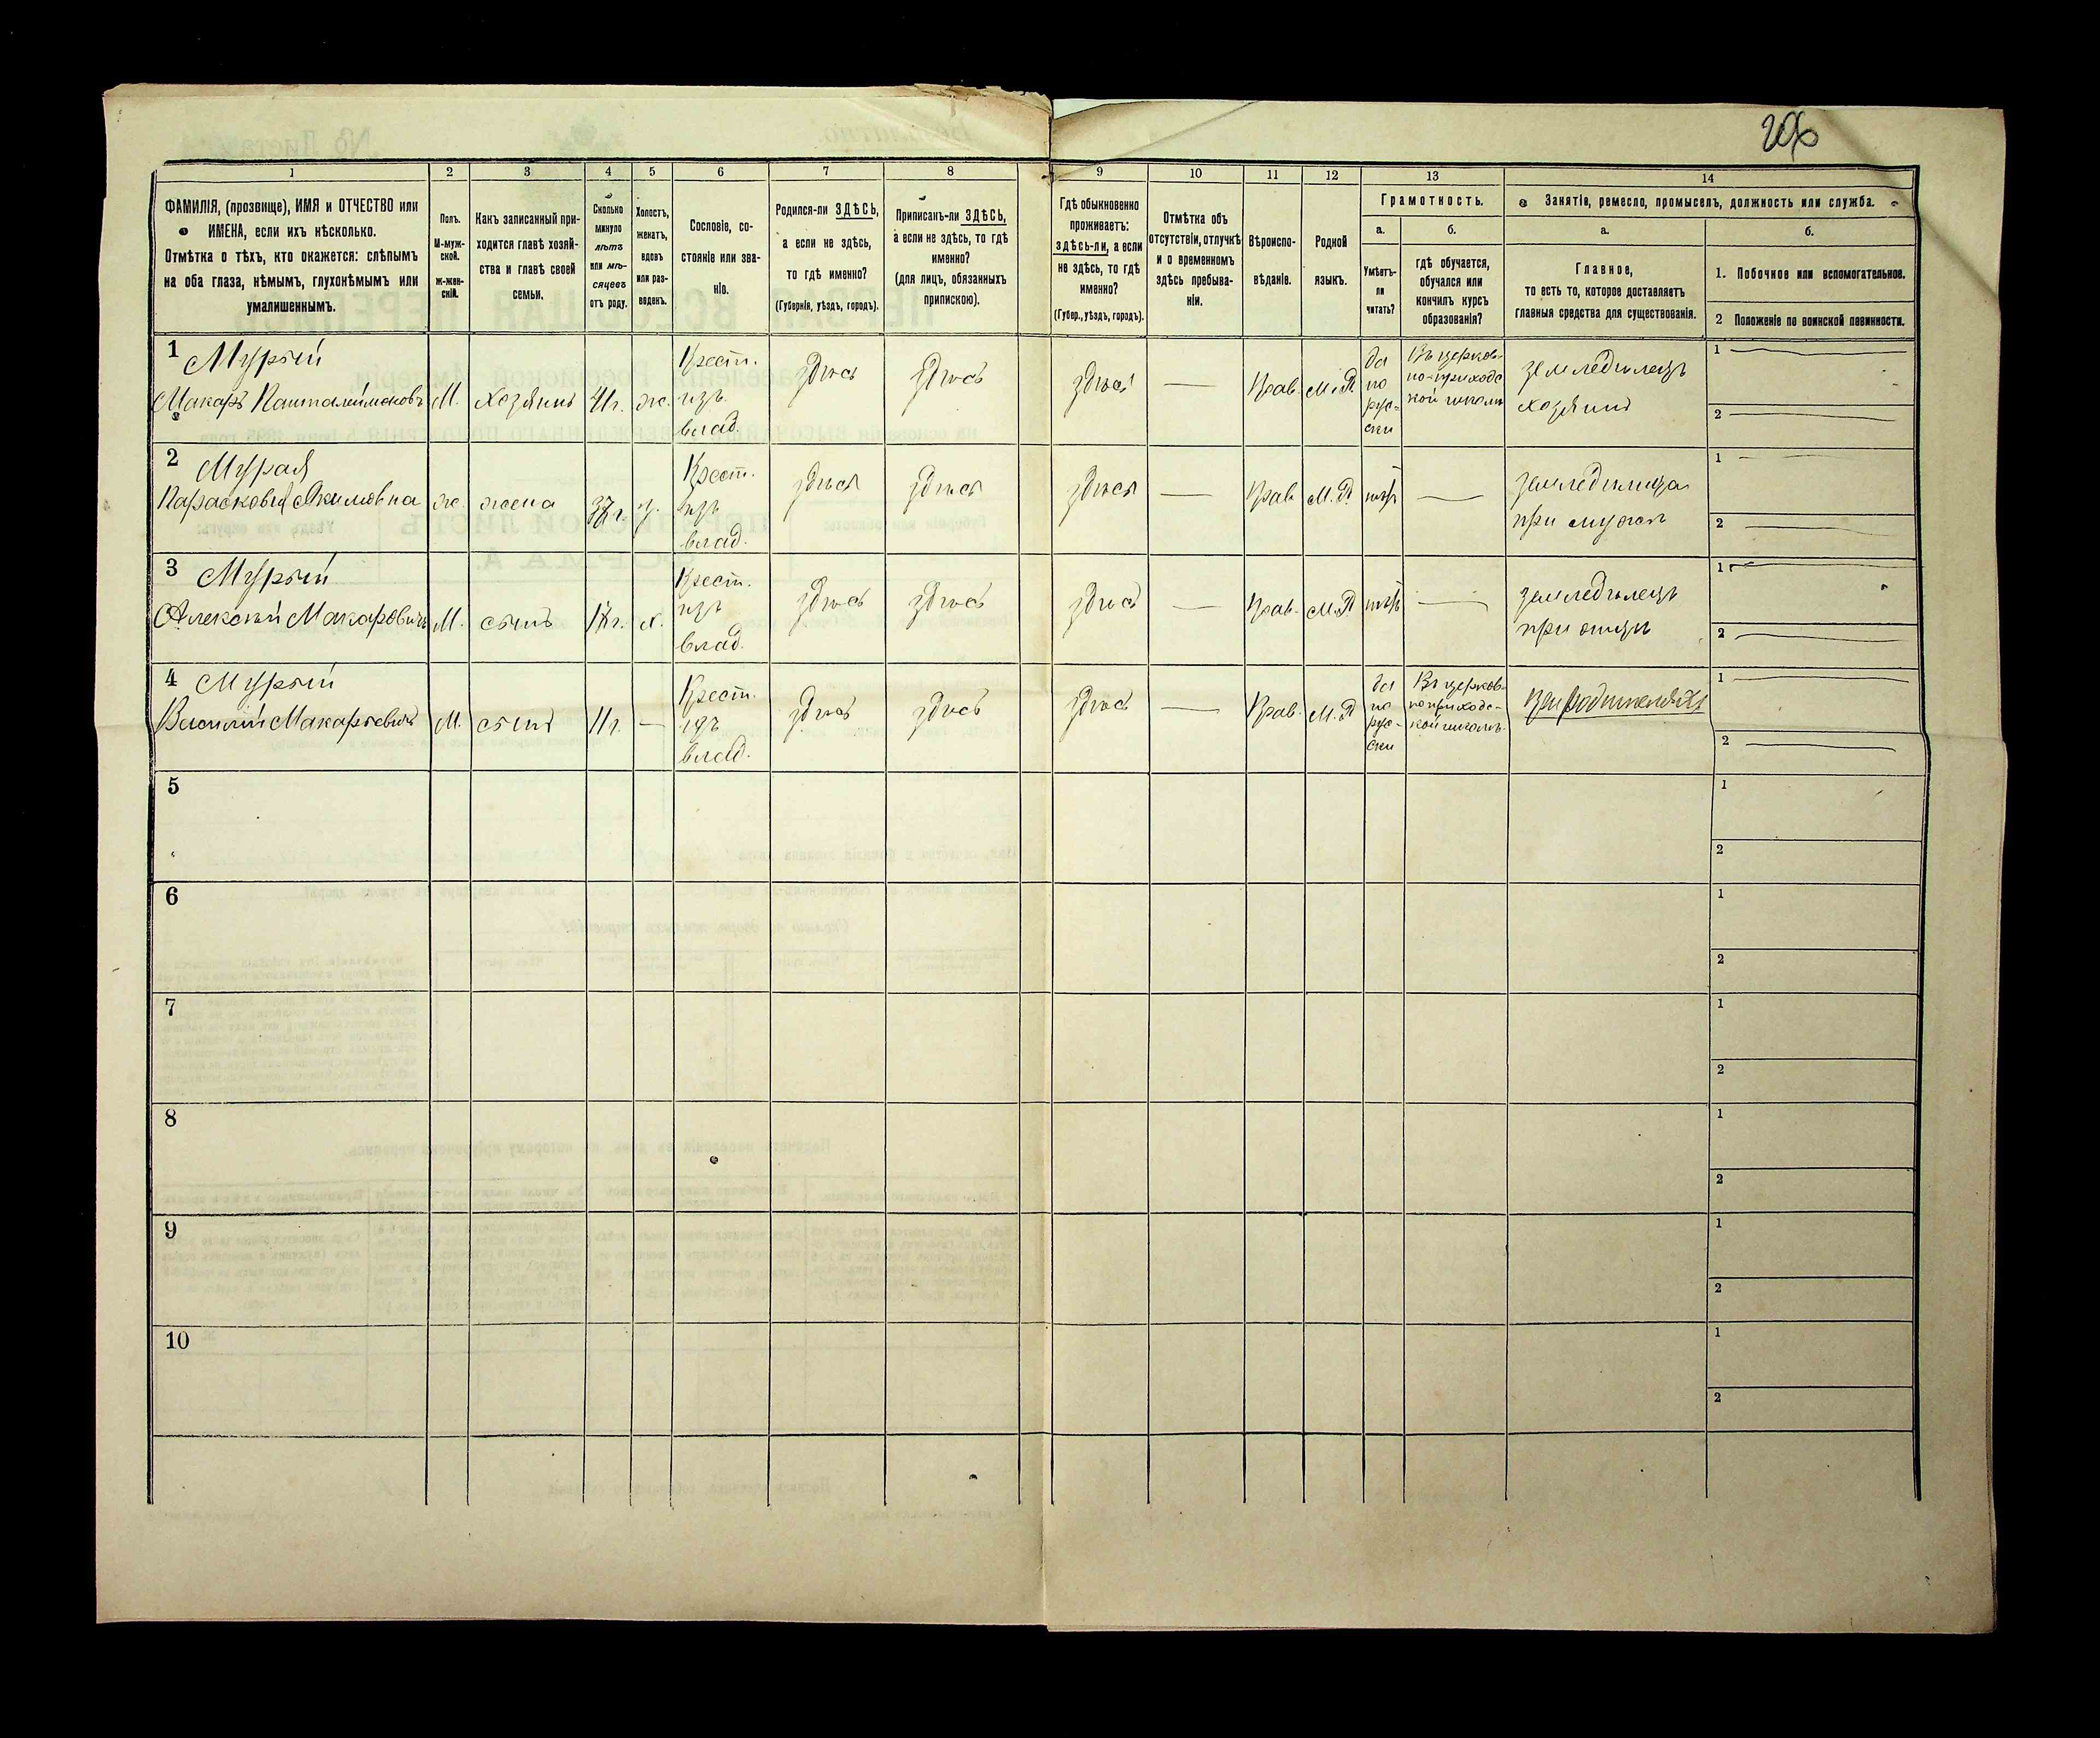 206
1
2
3
4
5
6
7
8
9
10
11
12
13
14
ФАМИЛІЯ, (прозвище), ИМЯ и ОТЧЕСТВО или
ИМЕНА, если ихъ нѣсколько.
Отмѣтка о тѣхъ, кто окажется: слѣпымъ
на оба глаза, нѣмымъ, глухонѣмымъ или
умалишеннымъ.
Полъ.
М-муж-
ской.
ж-жен-
скій.
Какъ записанный при-
ходится главѣ хозяй-
ства и главѣ своей
семьи.
Сколько
минуло
лѣтъ
или мѣ-
сяцевъ
отъ роду.
Холостъ,
женатъ,
вдовъ
или раз-
веденъ.
Сословіе, со-
стояніе или зва-
ніе.
Родился-ли ЗДѢСЬ,
а если не здѣсь,
то гдѣ именно?
(Губернія, уѣздъ, городъ).
Приписанъ-ли ЗДѢСЬ,
а если не здѣсь, то гдѣ
именно?
(для лицъ, обязанныхъ
припискою).
Гдѣ обыкновенно
проживаетъ:
здѣсь-ли, а если
не здѣсь, то гдѣ
именно?
(Губер., уѣздъ, городъ).
Отмѣтка объ
отсутствіи, отлучкѣ
и о временномъ
здѣсь пребыва-
ніи.
Вѣроиспо-
вѣданіе.
Родной
языкъ.
Грамотность.
а.
Умѣетъ-
ли
читать?
б.
гдѣ обучается,
обучался или
кончилъ курсъ
образованія?
Занятіе, ремесло, промыселъ, должность или служба.
а.
Главное,
то есть то, которое доставляетъ
главныя средства для существованія.
б.
1. Побочное или вспомогательное.
2 Положеніе по воинской повинности.
1 Мурый
Макаръ Панталеймоновъ
М.
хозяинъ
41 г.
ж.
Крест.
изъ
влад.
здѣсь
здѣсь
здѣсь
—
Прав.
М.Р.
да
по
рус-
ски
Въ церков-
но-приходс
кой школѣ
земледѣлецъ
хозяинъ
1 —
2 —
2 Мурая
Парасковья Якимовна
ж.
жена
37 г.
з.
Крест.
изъ
влад.
здѣсь
здѣсь
здѣсь
—
Прав.
М.Р.
нѣтъ
—
земледѣлица
при мужѣ
1 —
2 —
3 Мурый
Алексѣй Макаровичъ
М.
сынъ
г.
х.
Крест.
изъ
влад.
здѣсь
здѣсь
здѣсь
—
Прав.
М.Р.
нѣтъ
—
земледѣлецъ
при отцѣ
1 —
2 —
4 Мурый
Василій Макарьевичъ
М.
сынъ
11 г.
—
Крест.
изъ
влад.
здѣсь
здѣсь
здѣсь
—
Прав.
М.Р.
да
по
рус-
ски
Въ церков-
ноприходс-
кой школѣ.
при родителяхъ
1
2 —
5
1
2
6
1
2
7
1
2
8
1
2
9
1
2
10
1
2